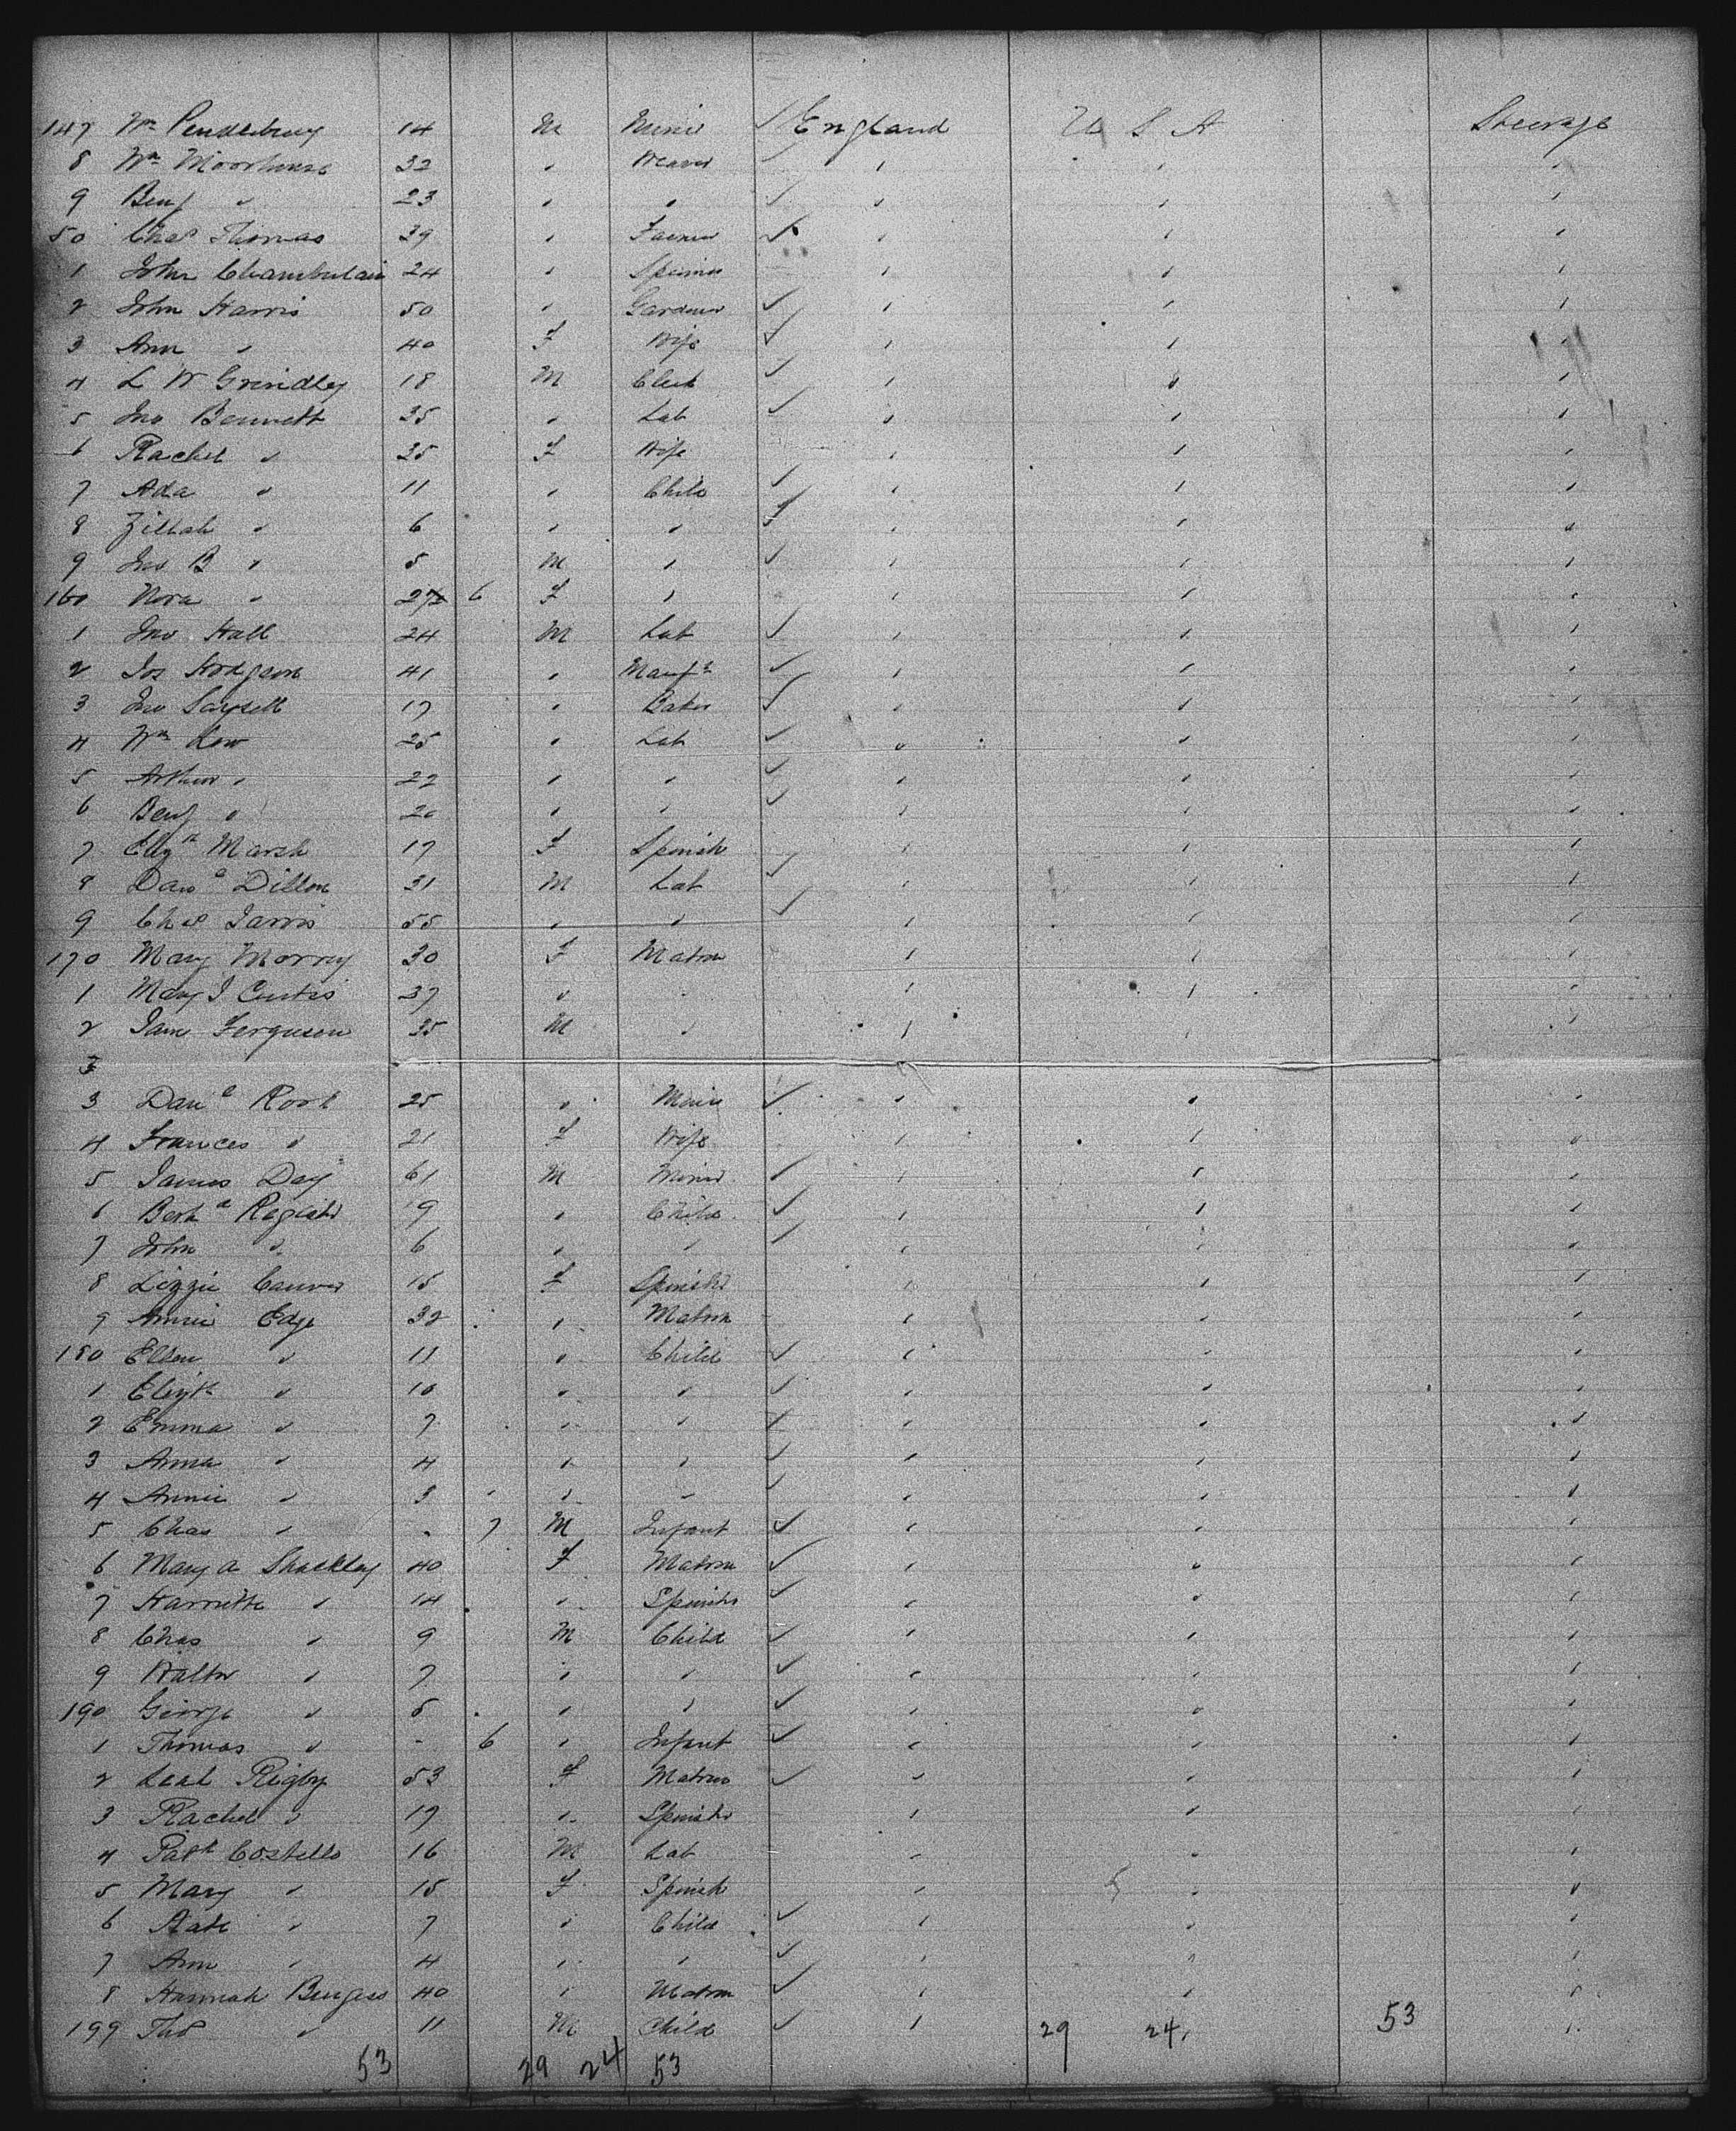 147 Wm Pendlebury 14 M Miner ✓ England U S A Steerage
8 Wm Moorhouse 32 " Weaver ✓ " " "
9 Benj " 23 " " ✓ " " "
50 Chas Thomas 39 " Farmer ✓ " " "
1 John Chamberlain 24 " Spinner " " "
2 John Harris 50 " Gardener ✓ " " "
3 Ann " 40 F Wife ✓ " " "
4 L W Grindley 18 M Clerk ✓ " " "
5 Jno Bennett 35 " Lab ✓ " " "
6 Rachel " 35 F Wife " " "
7 Ada " 11 " Child ✓ " " "
8 Zillah " 6 " " ✓ " " "
9 Jno B " 5 M " ✓ " " "
160 Nora " 6 F " " " "
1 Jno Hall 24 M Lab ✓ " " "
2 Jos Hodgson 41 " Manfr ✓ " " "
3 Jno 17 " Baker ✓ " " "
4 Wm Low 25 " Lab ✓ " " "
5 Arthur " 22 " " ✓ " " "
6 Benj " 20 " " ✓ " " "
7 Elizth Marsh 17 F Spinstr " " "
8 Danl Dillon 31 M Lab ✓ " " "
9 Chas Jarvis 55 " " ✓ " " "
170 Mary Morrey 30 F Matron " " "
1 Mary J Curtis 37 " " " " "
2 Jane Ferguson 35 M " " " "
3
3 Danl 25 " Miner ✓ " " "
4 Frances " 21 F Wife " " "
5 James Day 61 M Miner ✓ " " "
6 9 " Child ✓ " " "
7 John " 6 " " ✓ " " "
8 Lizzie 15 F Spinstr " " "
9 Annie Edge 32 " Matron " " "
180 Ellen " 11 " Child ✓ " " "
1 Elizth " 10 " " ✓ " " "
2 Emma " 7 " " ✓ " " "
3 Anna " 4 " " ✓ " " "
4 Annie " 3 " " ✓ " " "
5 Chas " - 7 M Infant ✓ " " "
6 Mary A Shackley 40 F Matron ✓ " " "
7 Harriette " 14 " Spinstr ✓ " " "
8 Chas " 9 M Child ✓ " " "
9 Walter " 7 " " ✓ " " "
190 George " 5 " " ✓ " " "
1 Thomas " - 6 " Infant ✓ " " "
2 Leah Rigby 53 F Matron ✓ " " "
3 Rachel " 19 " Spinstr " " "
4 Patk Costello 16 M Lab " " "
5 Mary " 15 F Spinstr " " "
6 Kate " 7 " Child ✓ " " "
7 Ann " 4 " " ✓ " " "
8 Hannah Burgess 40 " Matron ✓ " " "
199 Thos " 11 M Child ✓ " 29 24 53 "
53 29 24 53